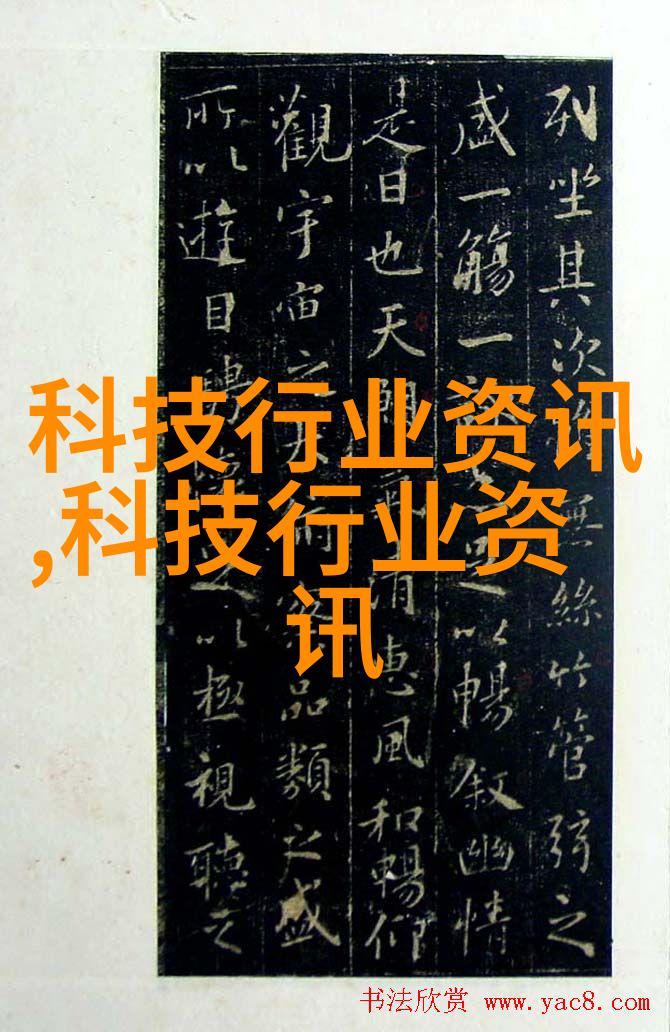 列坐其次無絲竹管弦之
盛一觴一以暢叙幽情
是日也天朗清惠風和暢仰
觀宇宙之大品類之盛
所以遊目騁以極視聽之
科技行业资讯
,科技行业资
讯
书法欣赏 www.yac8.com